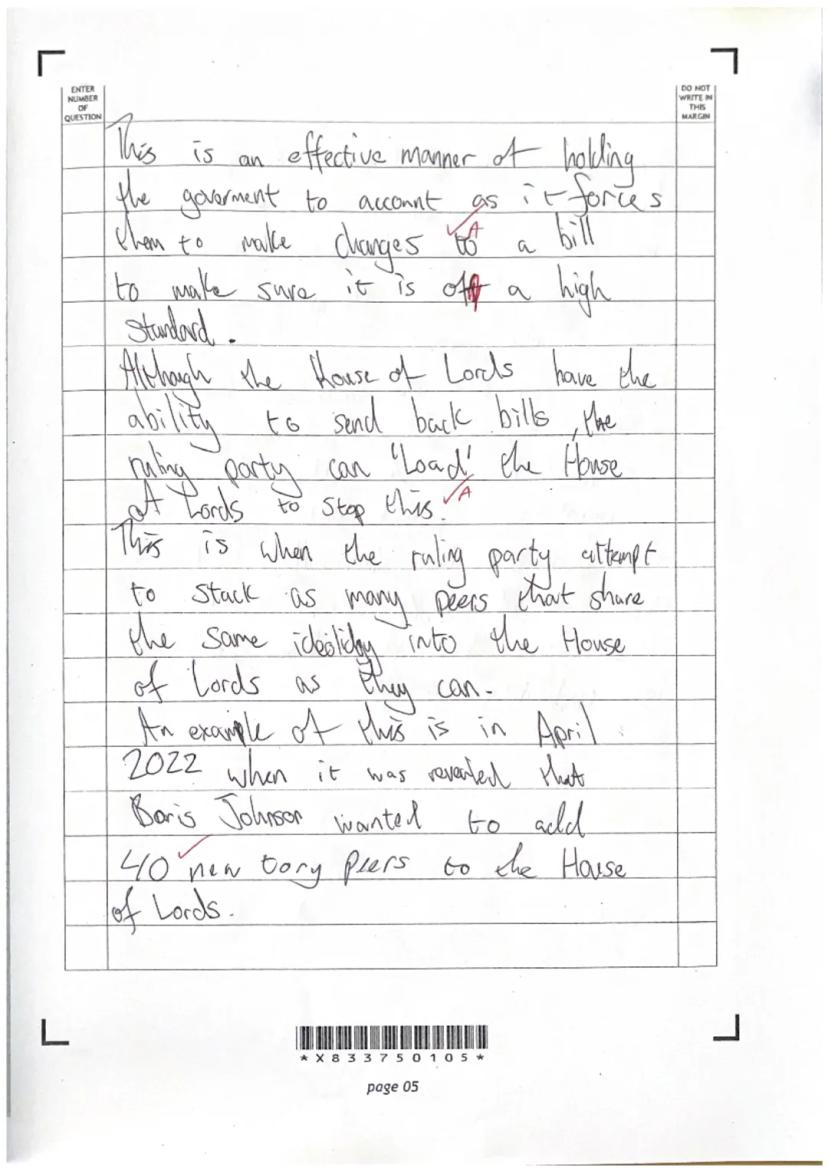 ENTER
NUMBER
OF
QUESTION
DO NOT
WRITE IN
THIS
MARGIN
This is an effective manner of holding
the goverment to account as it forces
them to make changes to a bill
A
to make sure it is of a high
standard.
Although the House of Lords have the
ability to send back bills, the
ruling party can 'Load' the House
of Lords to stop this. A
This is when the ruling party attempt
to stack as many peers that share
the same ideolidgy into the House
of Lords as they can.
An example of this is in April
2022 when it was revealed that
Boris Johnson wanted to add
40 new tory peers to the House
of Lords.
*X833750105*
page 05